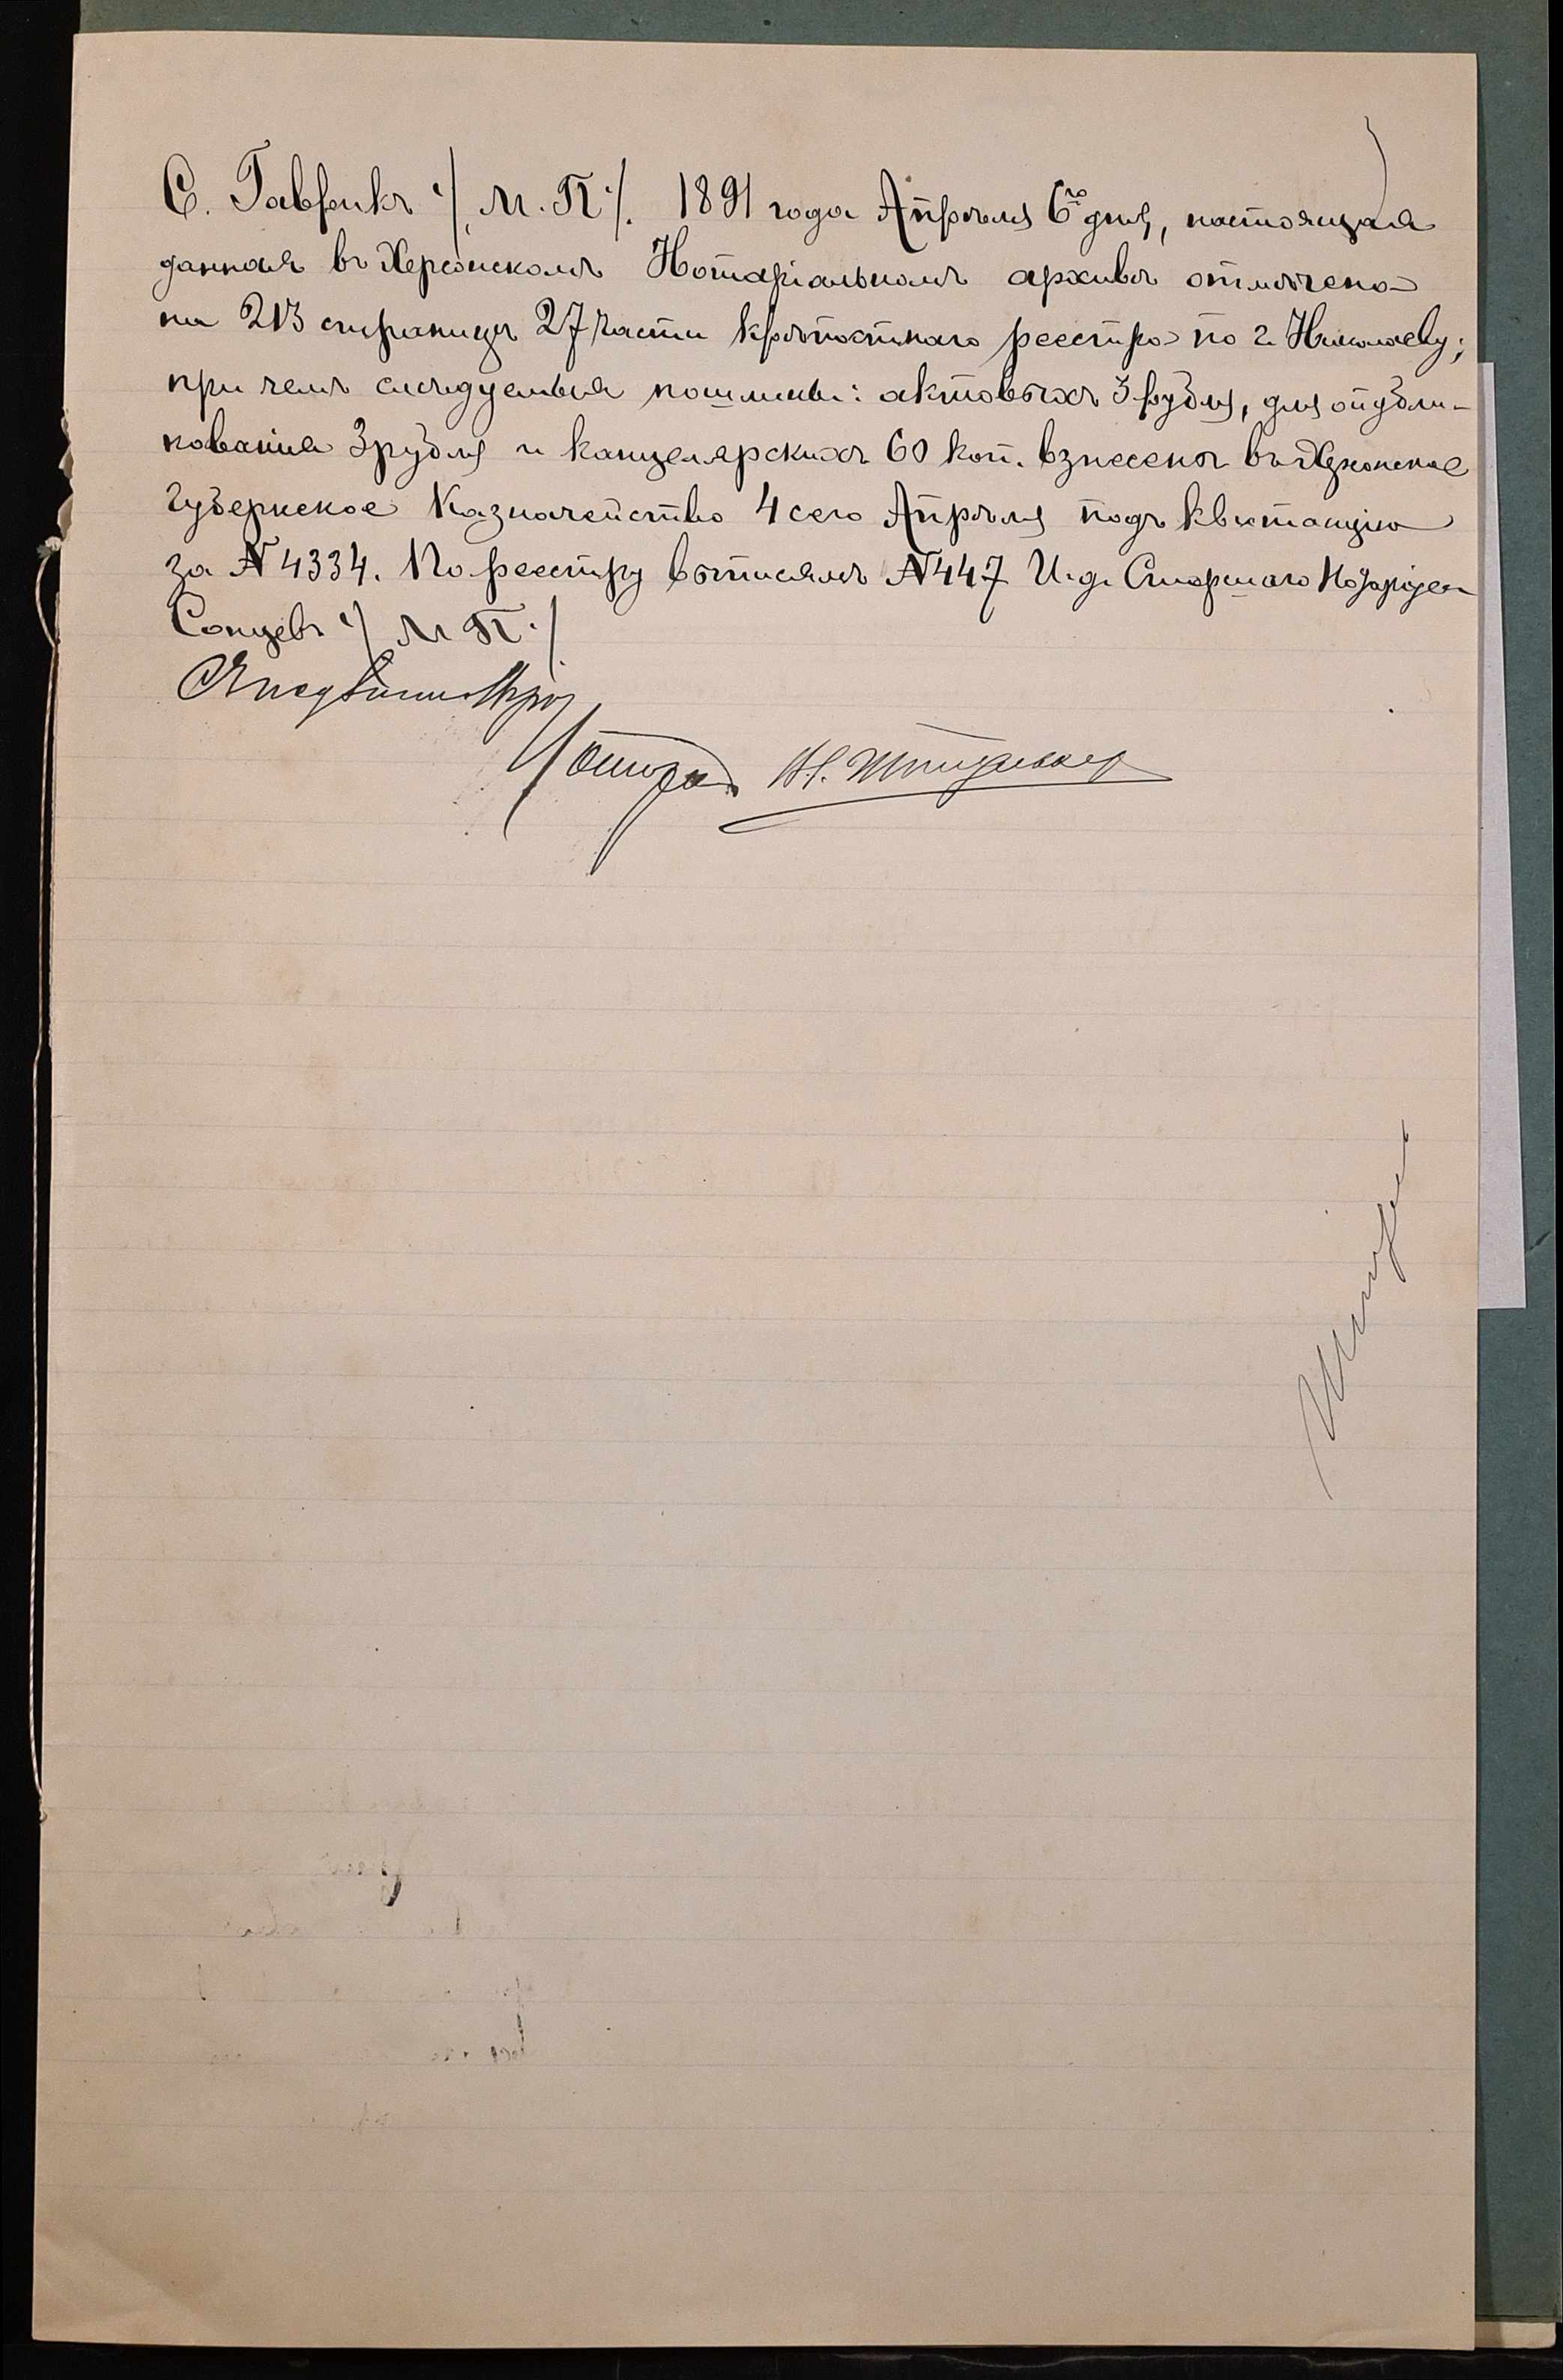 С. Гаврикъ ·/ М. П. /. 1891 года Апрѣля 6го дня, настоящая
данная въ Херсонскомъ Нотаріальномъ архивѣ отмѣчена
на 213 страницѣ 27 части крѣпостнаго реестра по г. Николаеву;
при чемъ слѣдуемыя пошлины: актовыхъ 3 рубля, для опубли-
кованія 3 рубля и канцелярскихъ 60 коп. взнесены въ Херсонское
Губернское Казначейство 4 сего Апрѣля подъ квитанцію
за № 4334. По реестру выписямъ № 447 И. д. Старшаго Нотаріуса
Сонцевъ ·/ М П. /